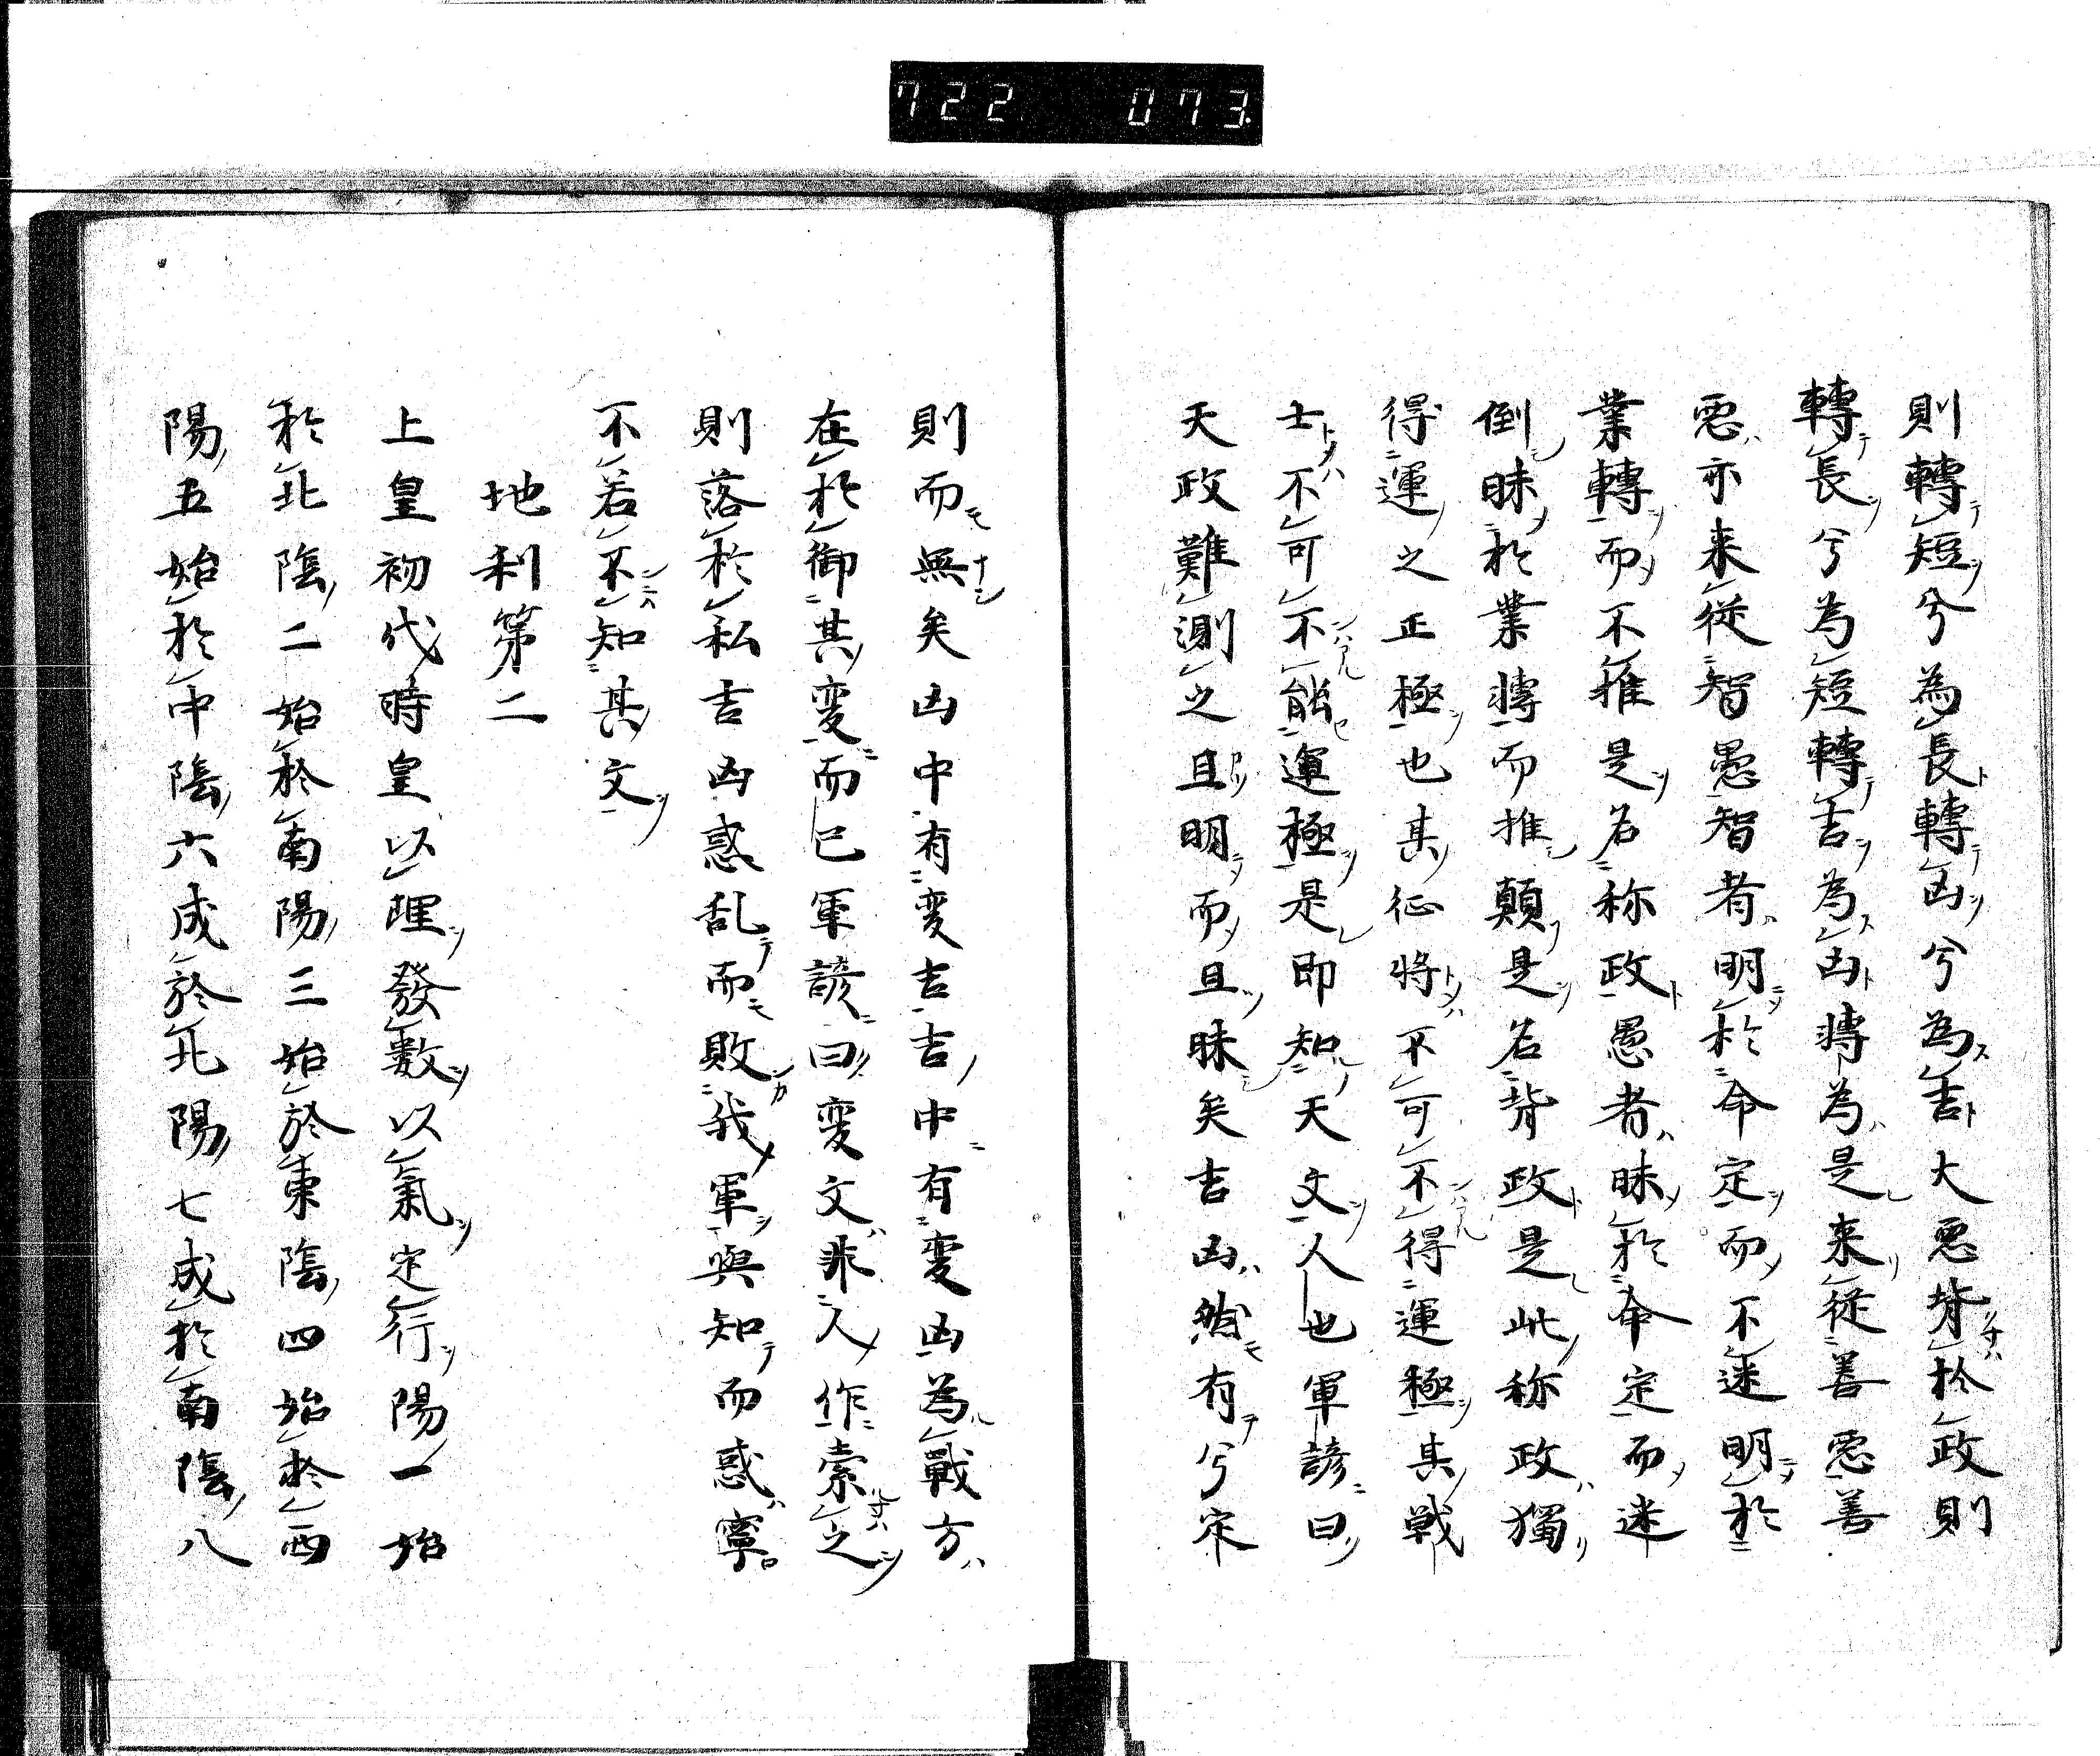 722 073.
則轉短兮為長轉凶兮為吉大悪背於政則
轉長兮為短轉吉為凶轉為是来従善悪善
悪亦来従智愚智者明於命定而不迷明於
業轉而不推是名称政愚者昧於命定而迷
倒昧於業轉而推顛是名背政是此称政獨
得運之正極也其征将不可不得運極其戦
士不可不能運極是即知天文人也軍諺曰
天政難測之且明而且昧矣吉凶然有兮定
則而無矣凶中有変吉吉中有変凶為戰方
在於御其変而已軍諺曰変文非人作索之
則落於私吉凶惑乱而敗我軍與知而惑寧
不若不知其文
地利第二
上皇初代時皇以理發數以氣定行陽一始
於北陰二始於南陽三始於東陰四始於西
陽五始於中陰六成於北陽七成於南陰八